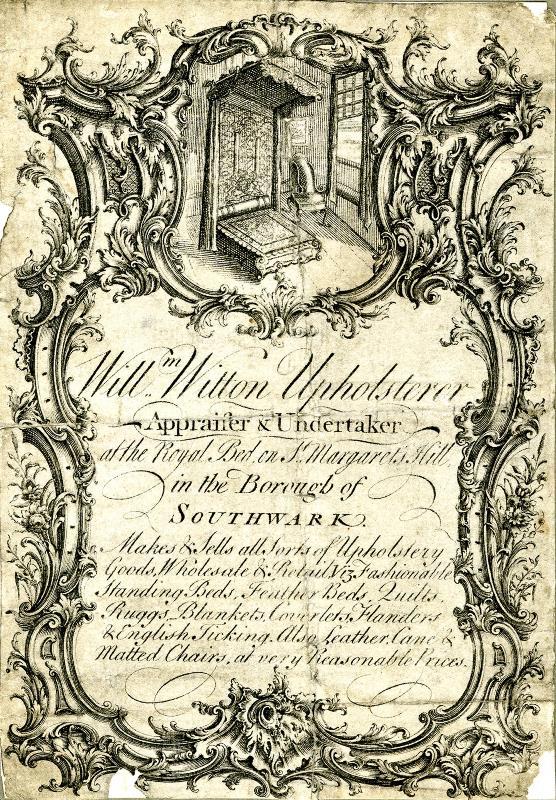 Will.m Witton Upholsterer
Appraiser & Undertaker
at the Royal Bed, on St. Margaret's Hill,
in the Borough of
SOUTHWARK.
Makes & Sells all Sorts of Upholstery
Goods, Wholesale & Retail, Viz. Fashionable
Standing Beds, Feather Beds, Quilts,
Ruggs, Blankets, Coverlets, Flanders
& English Ticking. Also Leather, Cane &
Matted Chairs, at very Reasonable Prices.